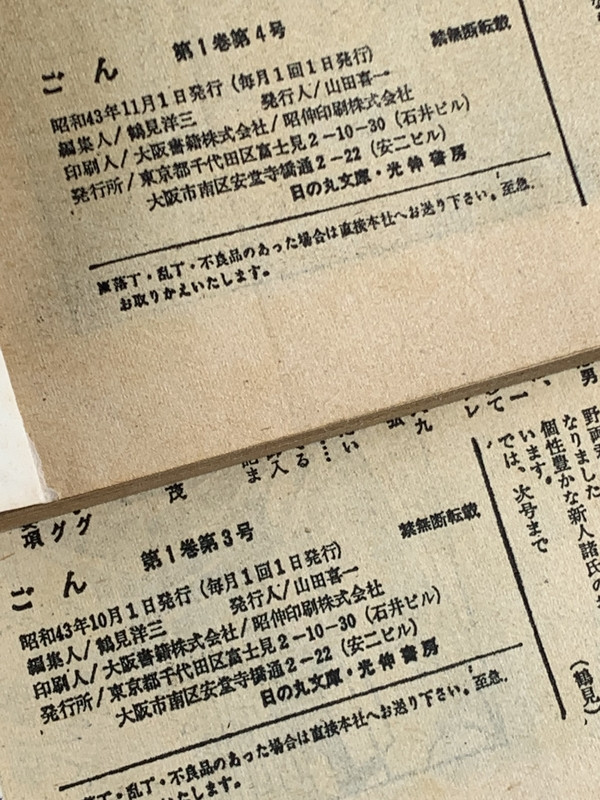 ごん 第1巻第4号 禁無断転載
昭和43年11月1日発行(毎月1回1日発行)
編集人/鶴見洋三 発行人/山田喜一
印刷人/大阪書籍株式会社/昭伸印刷株式会社
発行所/東京都千代田区富士見2-10-30(石井ビル)
大阪市南区安堂寺橋通2-22(安二ビル)
日の丸文庫・光伸書房
落丁・乱丁・不良品のあった場合は直接本社へお送り下さい。至急、
お取りかえいたします。
野
なりました
個性豊かな新人諸氏の
います。
では、次号まで
(鶴見)
ごん 第1巻第3号 禁無断転載
昭和43年10月1日発行(毎月1回1日発行)
編集人/鶴見洋三 発行人/山田喜一
印刷人/大阪書籍株式会社/昭伸印刷株式会社
発行所/東京都千代田区富士見2-10-30(石井ビル)
大阪市南区安堂寺橋通2-22(安二ビル)
日の丸文庫・光伸書房
落丁・乱丁・不良品のあった場合は直接本社へお送り下さい。至急、
いたします。